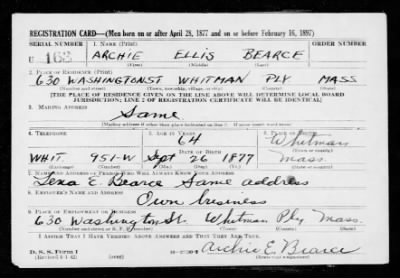 REGISTRATION CARD—(Men born on or after April 28, 1877 and on or before February 16, 1897)
SERIAL NUMBER 1. NAME (Print) ORDER NUMBER
U 163 ARCHIE ELLIS BEARCE
(First) (Middle) (Last)
2. PLACE OF RESIDENCE (Print)
630 WASHINGTON ST WHITMAN PLY MASS
(Number and street) (Town, township, village, or city) (County) (State)
[THE PLACE OF RESIDENCE GIVEN ON THE LINE ABOVE WILL DETERMINE LOCAL BOARD
JURISDICTION; LINE 2 OF REGISTRATION CERTIFICATE WILL BE IDENTICAL]
3. MAILING ADDRESS
Same
(Mailing address if other than place indicated on line 2. If same insert word same)
4. TELEPHONE 5. AGE IN YEARS 6. PLACE OF BIRTH
64 Whitman
DATE OF BIRTH
WHIT. 951-W Sept 26 1877 Mass.
(Exchange) (Number) (Mo.) (Day) (Yr.) (State or country)
7. NAME AND ADDRESS OF PERSON WHO WILL ALWAYS KNOW YOUR ADDRESS
Lena E. Bearce Same address
8. EMPLOYER'S NAME AND ADDRESS
Own business
9. PLACE OF EMPLOYMENT OR BUSINESS
630 Washington St. Whitman Ply Mass.
(Number and street or R. F. D. number) (Town) (County) (State)
I AFFIRM THAT I HAVE VERIFIED ABOVE ANSWERS AND THAT THEY ARE TRUE.
D. S. S. Form 1
(Revised 4-1-42) Archie E. Bearce